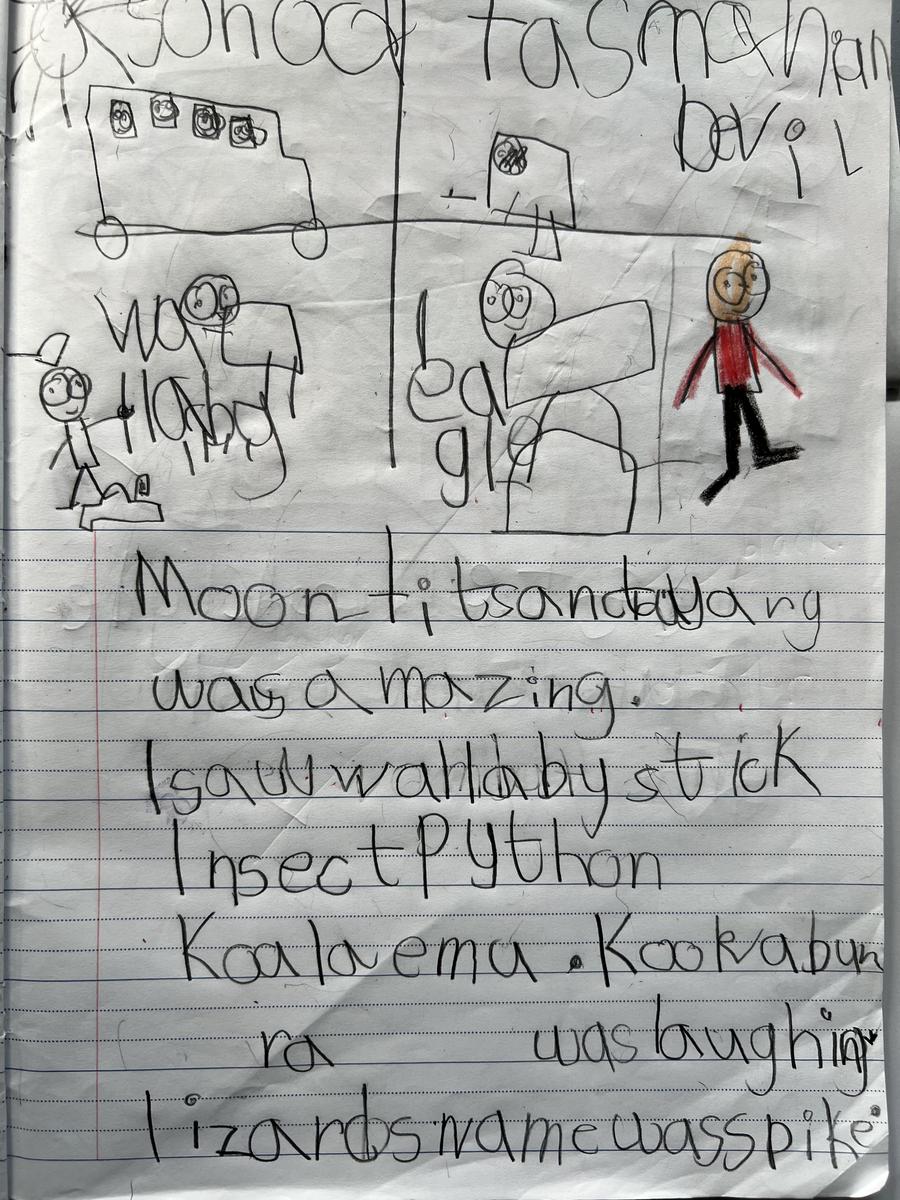 school
tasmahian
Devil
wallaby
eagle
Moon litsanctuyary
was a mazing.
I saw wallaby stick
Insect Python
Koala emu. Kookabun
ra was laughing
lizards name was spike